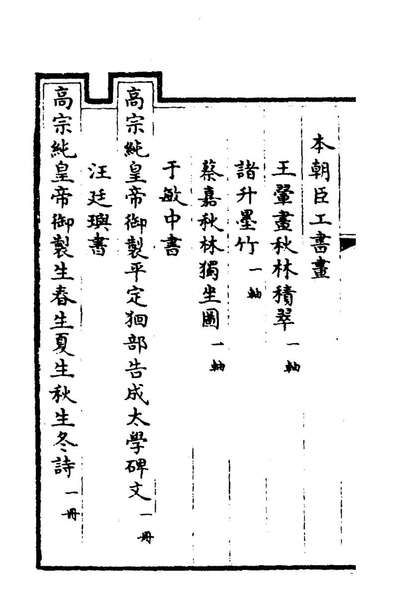 本朝臣工書畫
王翬畫秋林積翠一軸
諸升墨竹一軸
蔡嘉秋林獨坐圖一軸
于敏中書
高宗純皇帝御製平定㺄部告成太學碑文一冊
汪廷璵書
高宗純皇帝御製生春生夏生秋生冬詩一冊